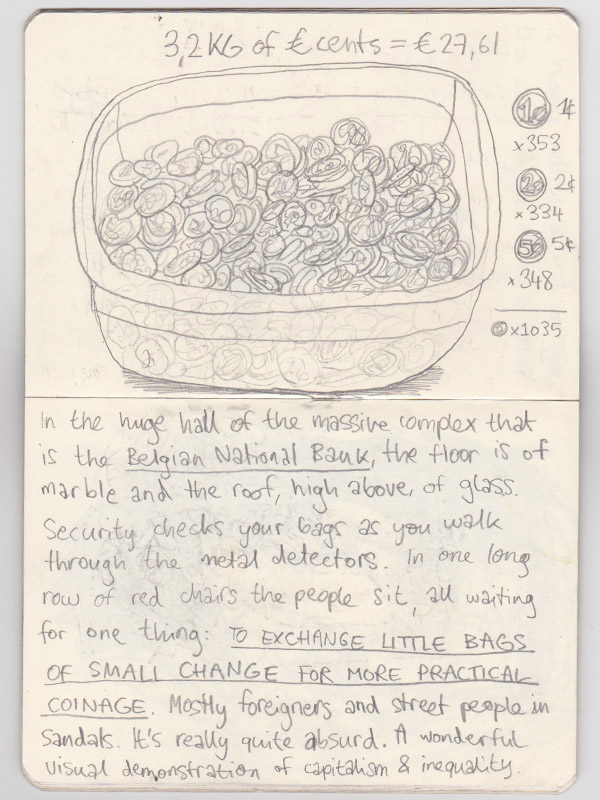 3,2 KG of € cents = € 27,61
1c 1¢
x353
2c 2¢
x334
5c 5¢
x348
x1035
In the huge hall of the massive complex that
is the Belgian National Bank, the floor is of
marble and the roof, high above, of glass.
Security checks your bags as you walk
through the metal detectors. In one long
row of red chairs the people sit, all waiting
for one thing: TO EXCHANGE LITTLE BAGS
OF SMALL CHANGE FOR MORE PRACTICAL
COINAGE. Mostly foreigners and street people in
Sandals. It's really quite absurd. A wonderful
visual demonstration of capitalism & inequality.